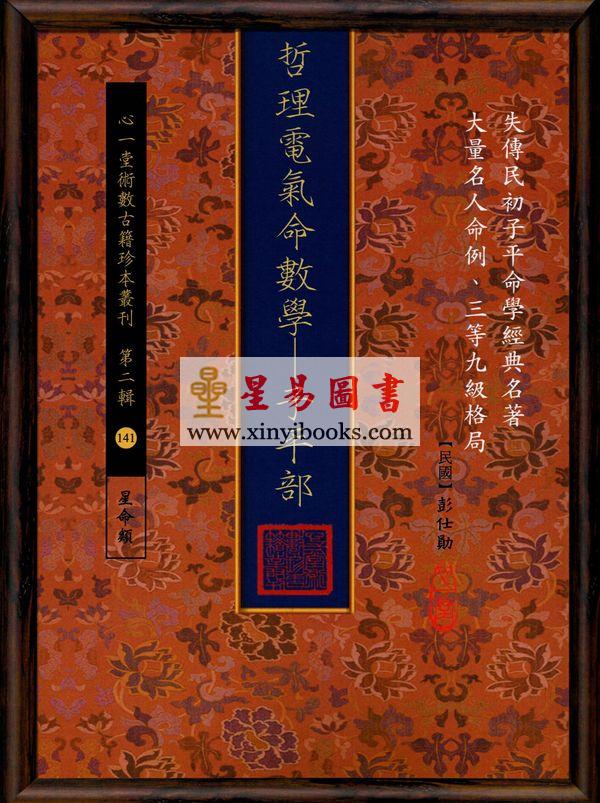 失傳民初子平命學經典名著
大量名人命例、三等九級格局
【民國】彭仕勛
哲理電氣命數學——子平部
心一堂術數古籍珍本叢刊 第二輯
141
星命類
星易圖書
www.xinyibooks.com